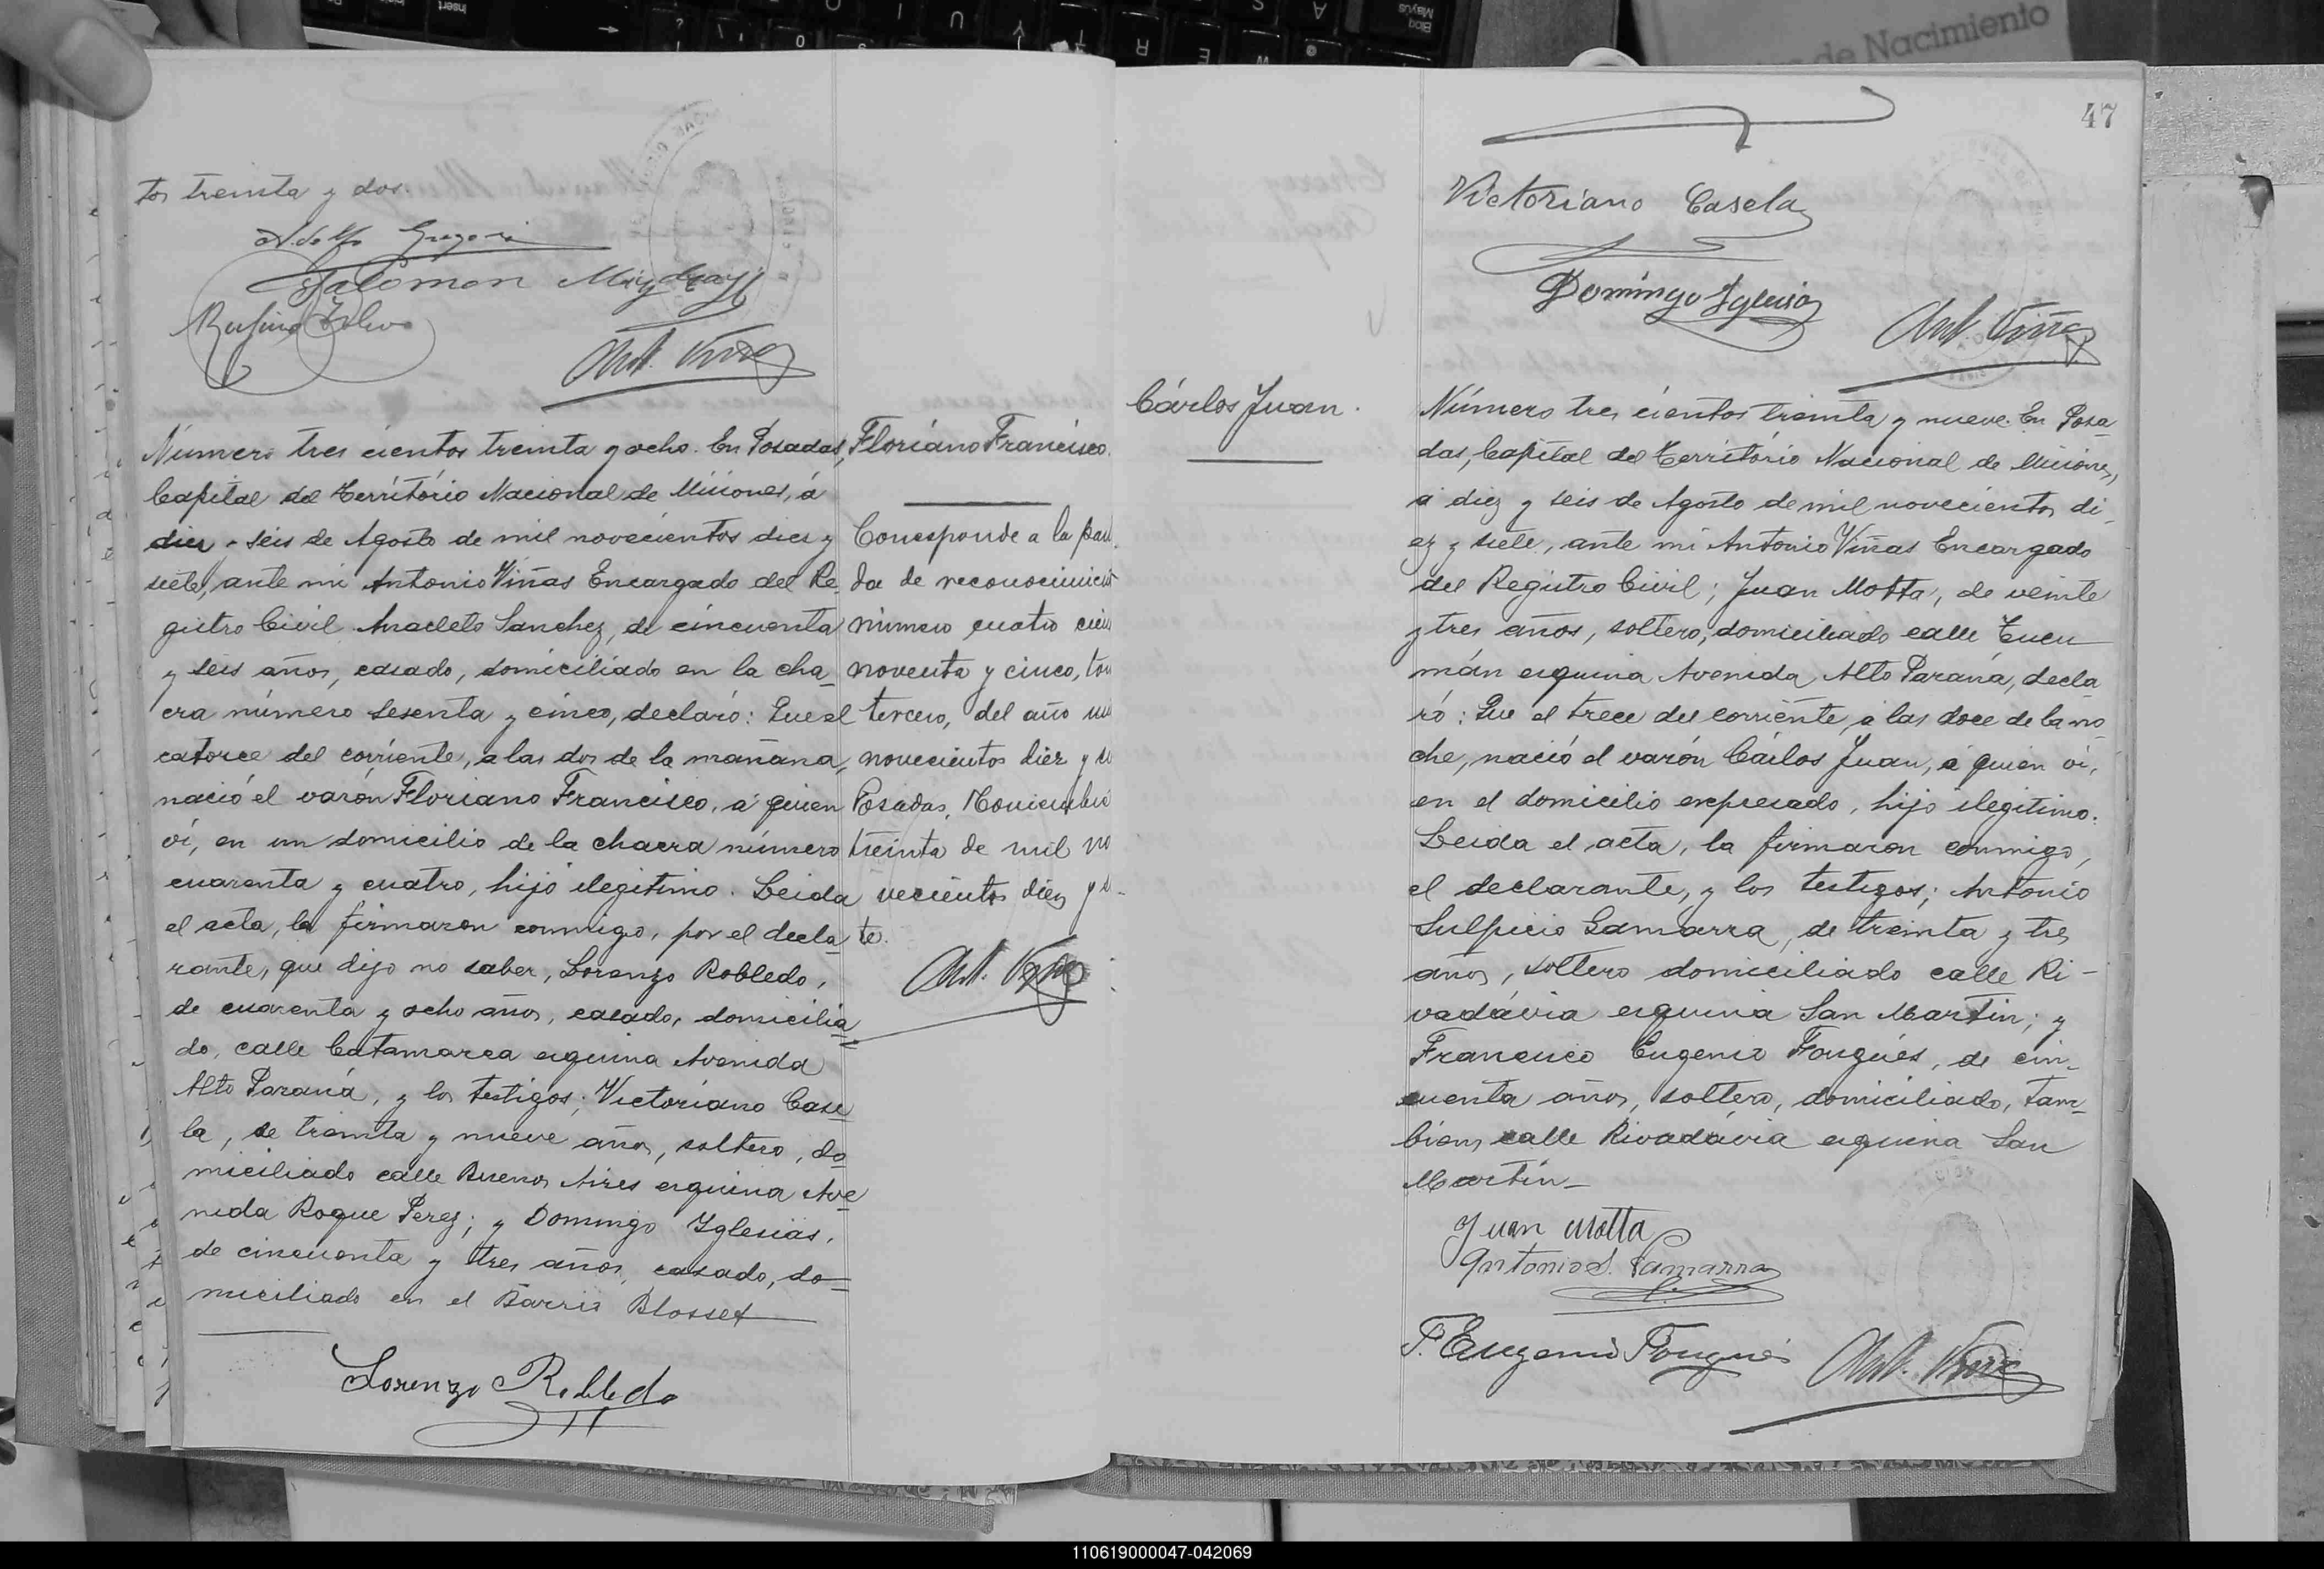 tos treinta y dos.
Adolfo Gregori
Salomon
Rufino
Ant. Viñas
Número tres cientos treinta y ocho. En Posadas,
Capital del Território Nacional de Misiones, á
diez y seis de Agosto de mil novecientos diez y
siete, ante mi Antonio Viñas Encargado del Re
gistro Civil Anacleto Sanchez, de cincuenta
y seis años, casado, domiciliado en la cha_
cra número sesenta y cinco, declaró: Que el
catorce del corriente, a las dos de la mañana,
nació el varón Floriano Francisco, a quien
ví, en un domicilio de la chacra número
cuarenta y cuatro, hijo ilegitimo. Leida
el acta, la firmaron conmigo, por el decla
rante, que dijo no saber, Lorenzo Robledo,
de cuarenta y ocho años, casado, domicilia
do, calle Catamarca esquina Avenida
Alto Paraná, y los testigos; Victoriano Case
la, de treinta y nueve años, soltero, do
miciliado calle Buenos Aires esquina Ave
nida Roque Perez; y Domingo Yglesias,
de cincuenta y tres años, casado, do_
miciliado en el Barrio Blosset
Lorenzo Robledo
Floriano Francisco.
Corresponde a la par
da de reconocimient
número cuatro cien
noventa y cinco, to
tercero, del año mi
novecientos diez y si
Posadas, Noviembre
treinta de mil no
vecientos diez y si_
te.
Ant. Viñas
47
Victoriano Casela
Domingo Yglesias
Ant. Viñas
Cárlos Juan.
Número tres cientos treinta y nueve. En Posa_
das, Capital del Território Nacional de Misiones,
á diez y seis de Agosto de mil novecientos di_
ez y siete, ante mi Antonio Viñas Encargado
del Registro Civil; Juan Motta, de veinte
y tres años, soltero, domiciliado calle Tucu
mán esquina Avenida Alto Paraná, decla
ró: Que el trece del corriente, a las doce de la no_
che, nació el varón Cárlos Juan, á quien ví,
en el domicilio expresado, hijo ilegitimo.
Leida el acta, la firmaron conmigo,
el declarante, y los testigos; Antonio
Sulpicio Gamarra, de treinta y tres
años, soltero domiciliado calle Ri-
vadávia esquina San Martin; y
Francisco Eugenio Fougués, de cin_
cuenta años, soltero, domiciliado, tam_
bien, calle Rivadávia esquina San
Martín_
Juan Motta
Antonio S. Gamarra
F. Eugenio Fougués
Ant. Viñas
de Nacimiento
110619000047-042069